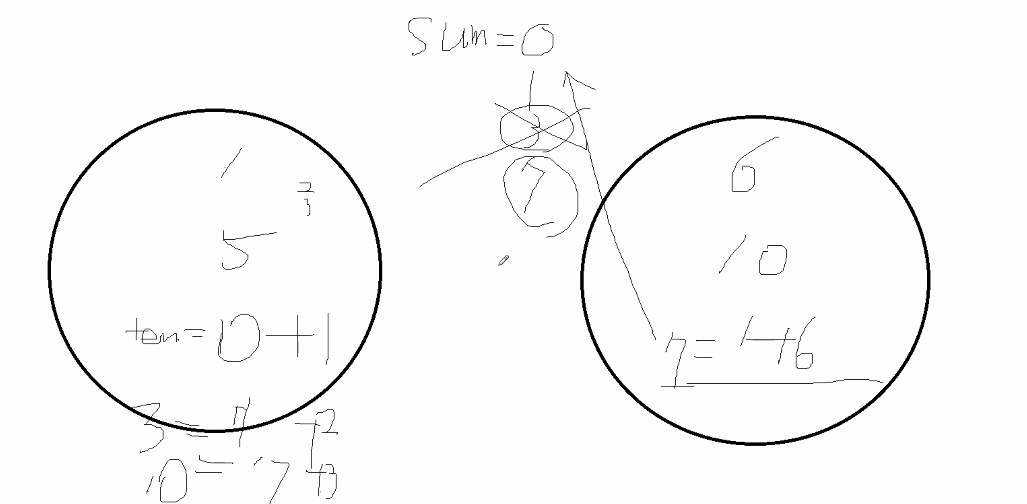 Sum=0
1
3
7
2
3
5
tem=10+1
3=1 +2
10=7+3
6
10
7=1+6